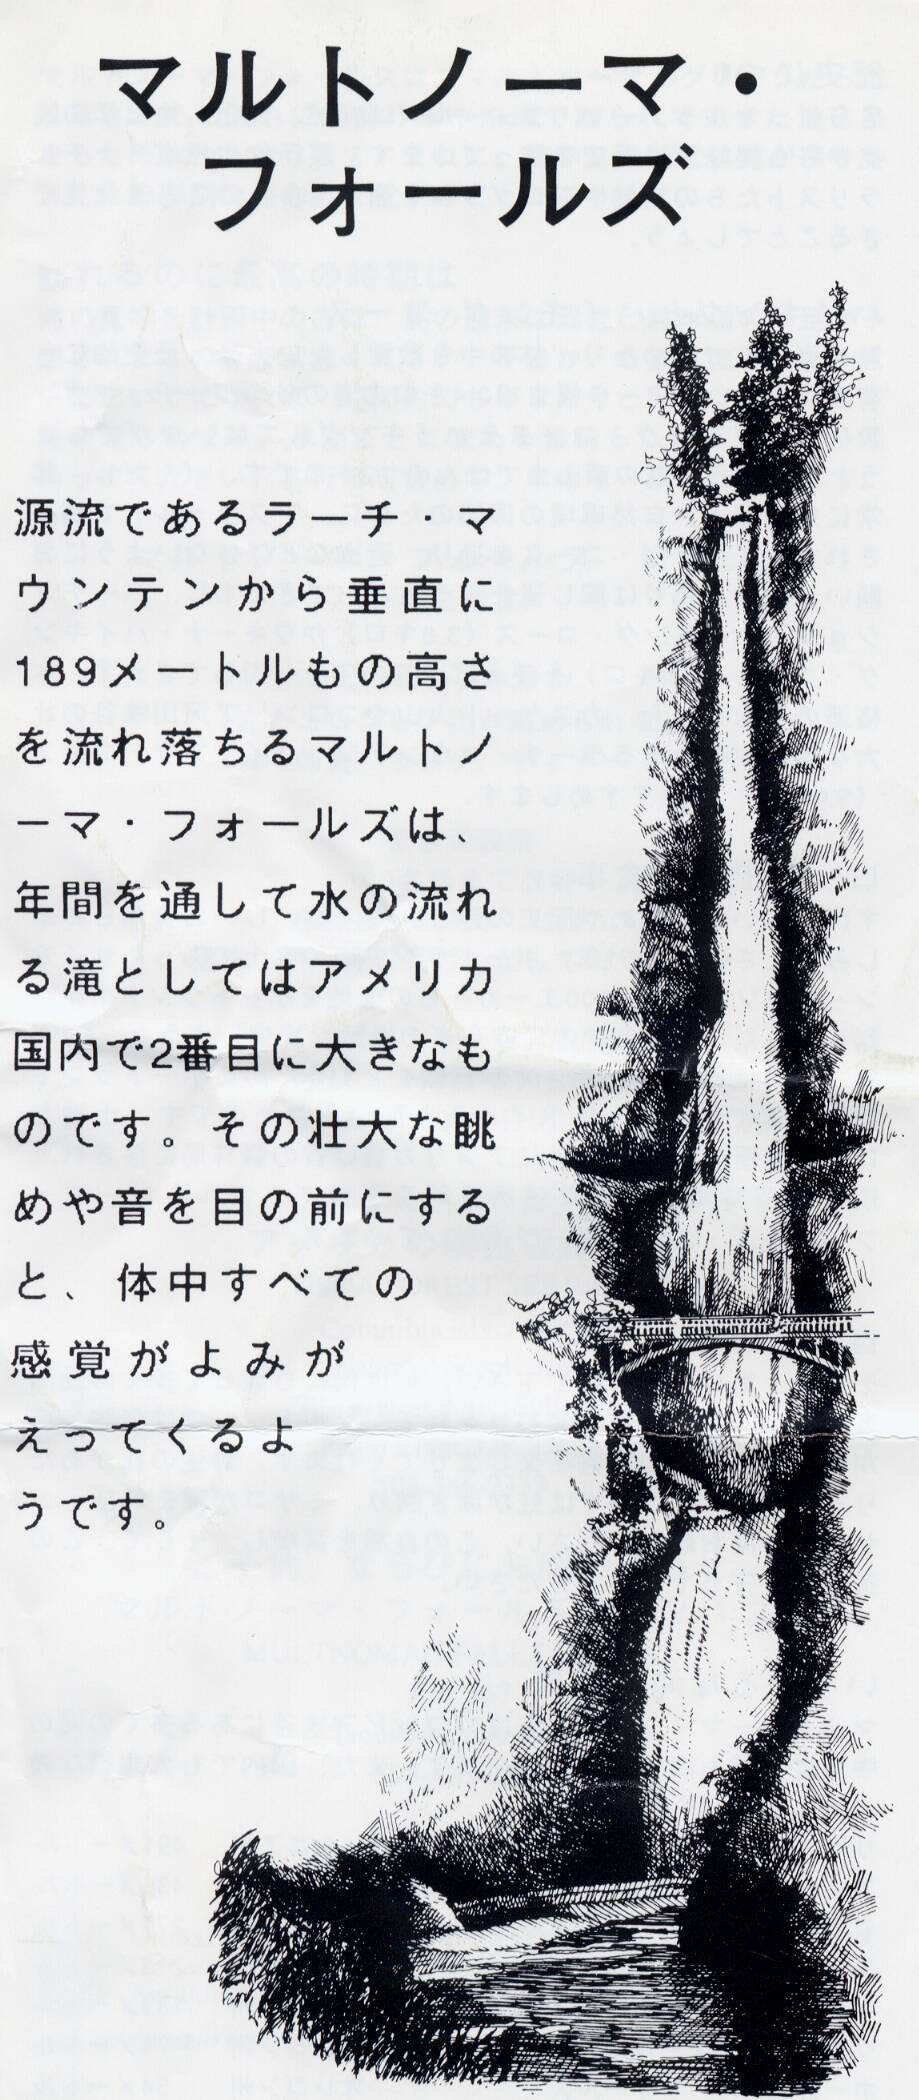 マルトノーマ・
フォールズ
源流であるラーチ・マ
ウンテンから垂直に
189メートルもの高さ
を流れ落ちるマルトノ
ーマ・フォールズは、
年間を通して水の流れ
る滝としてはアメリカ
国内で2番目に大きなも
のです。その壮大な眺
めや音を目の前にする
と、体中すべての
感覚がよみが
えってくるよ
うです。